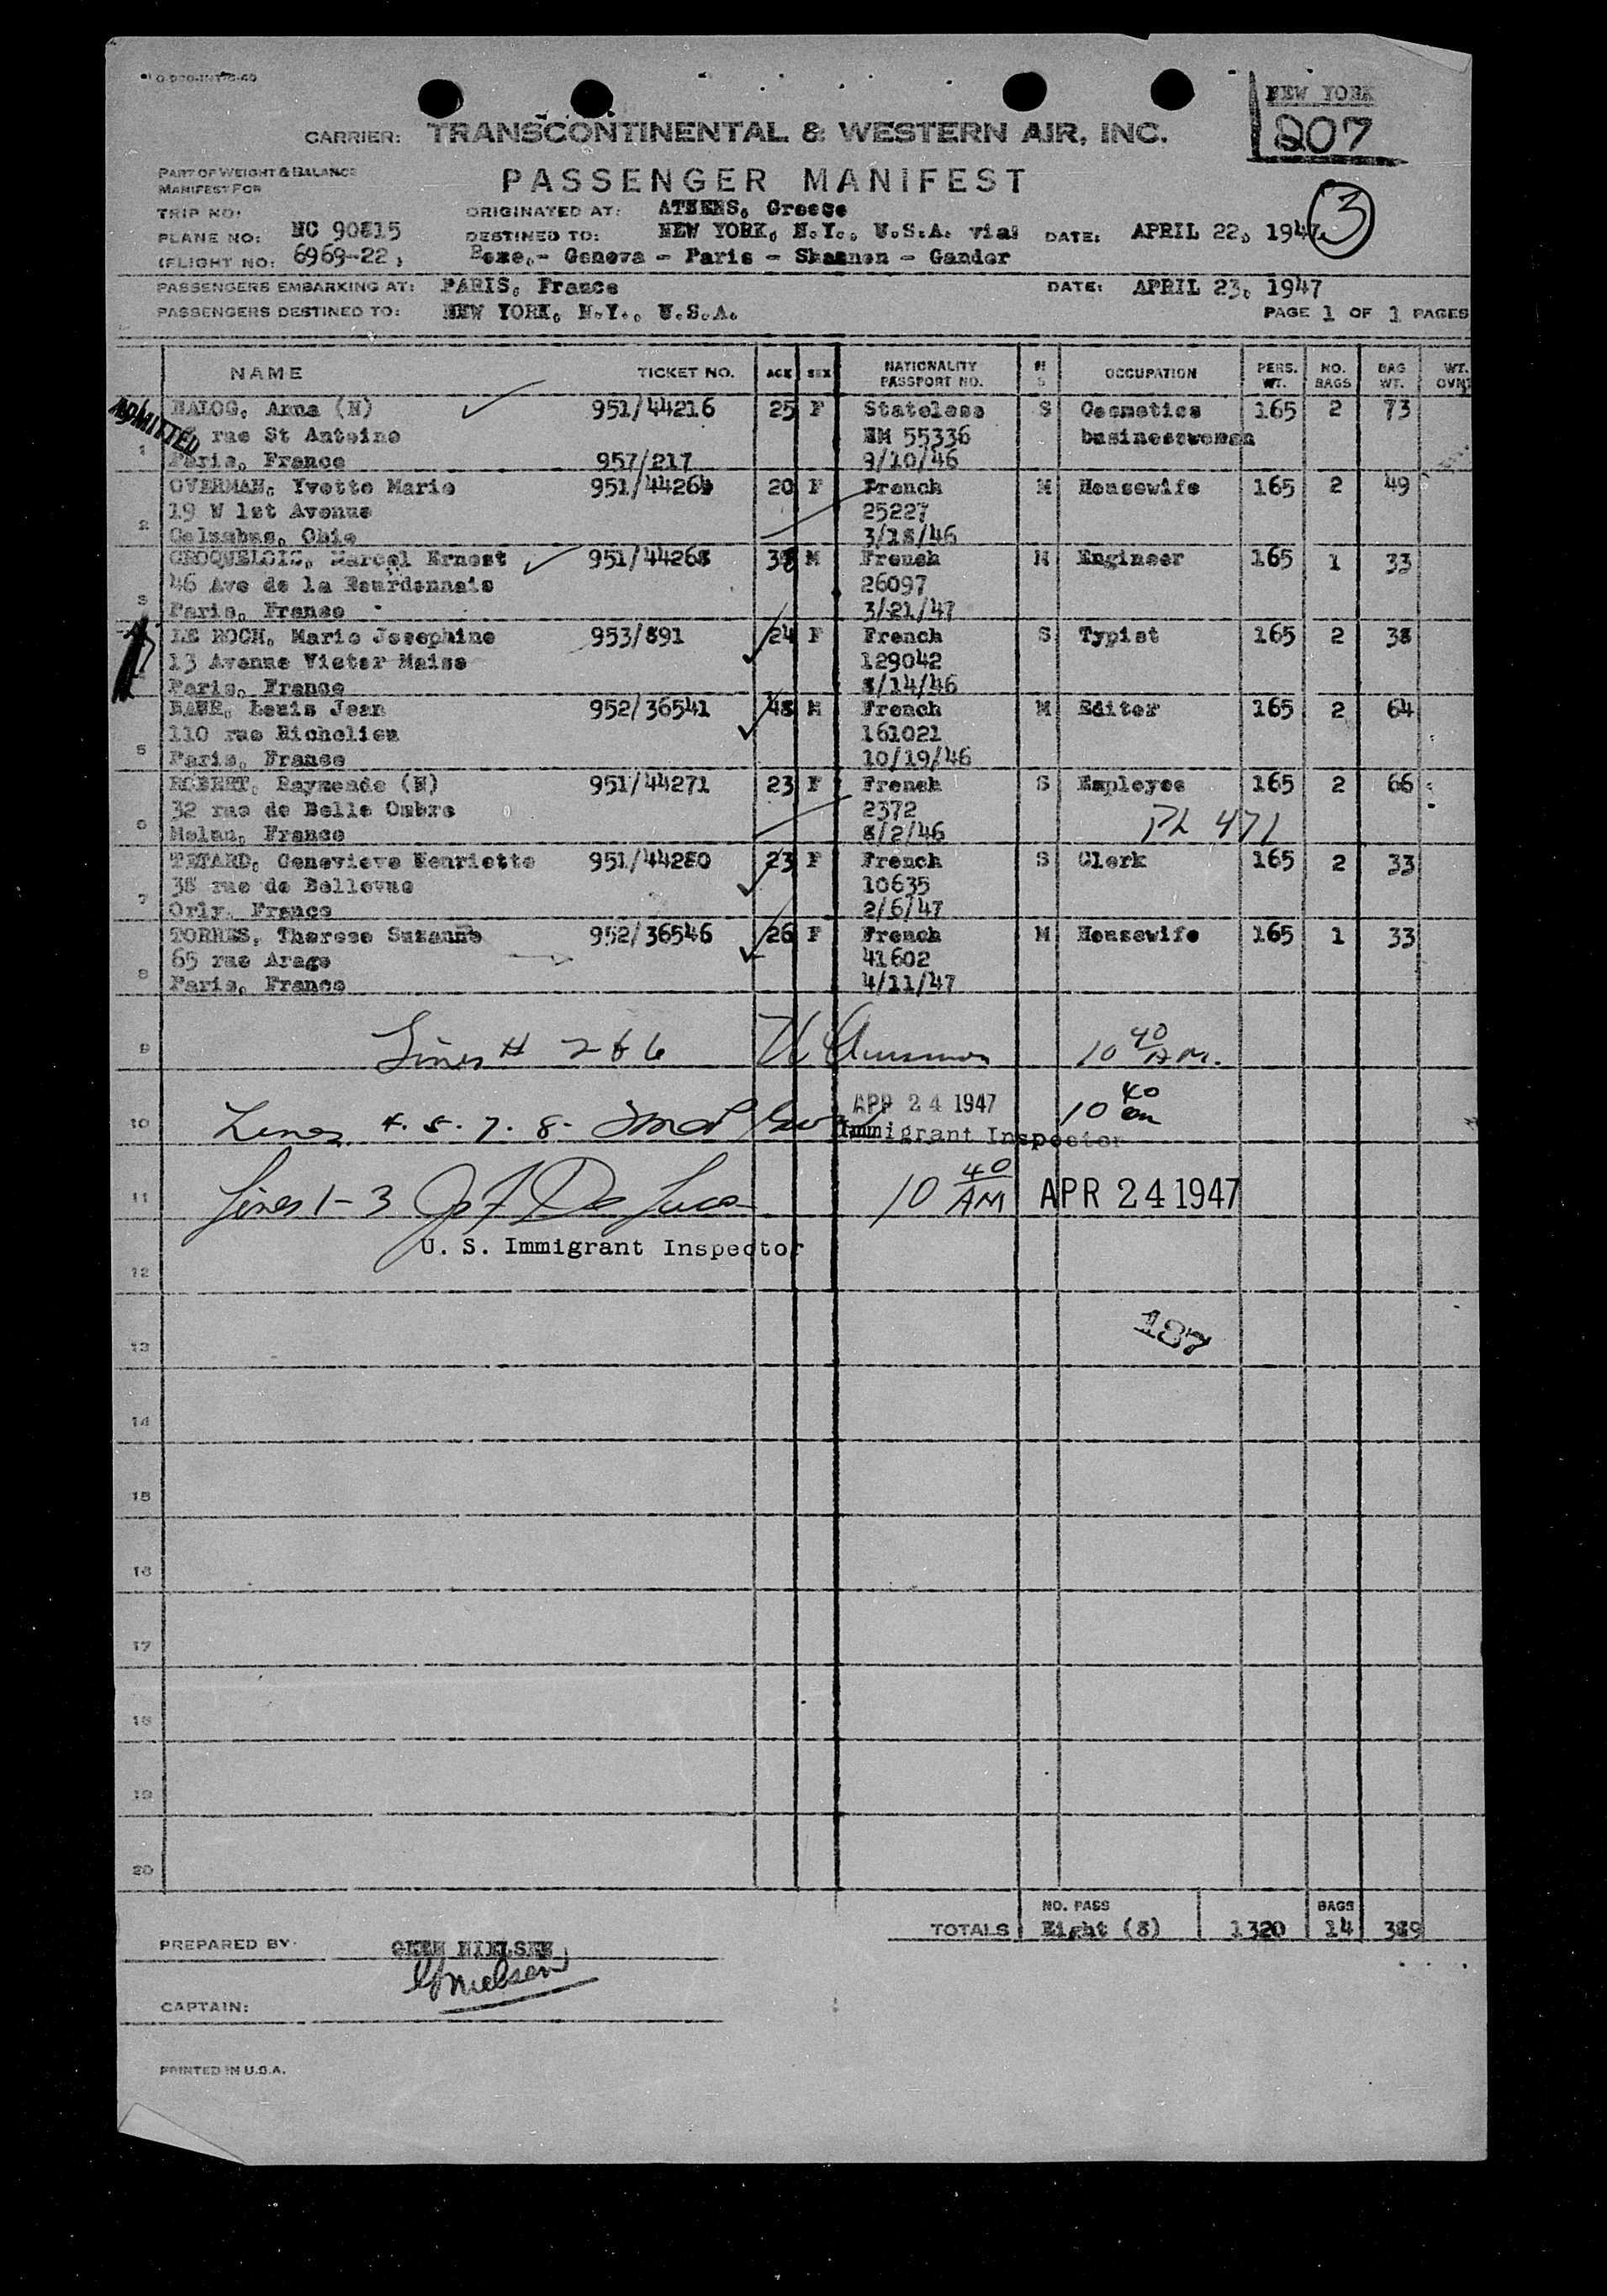 NEW YORK
207
CARRIER: TRANSCONTINENTAL & WESTERN AIR, INC.
PART OF WEIGHT & BALANCE
MANIFEST FOR
PASSENGER MANIFEST
3
TRIP NO: ORIGINATED AT: ATHENS, Greece
PLANE NO: NC 90815 DESTINED TO: NEW YORK, N.Y., U.S.A. via: DATE: APRIL 22, 1947
(FLIGHT NO: 6969-22) Rome,- Geneva - Paris - Shannon - Gander
PASSENGERS EMBARKING AT: PARIS, France DATE: APRIL 23, 1947
PASSENGERS DESTINED TO: NEW YORK, N.Y., U.S.A. PAGE 1 OF 1 PAGES
NAME TICKET NO. AGE SEX NATIONALITY PASSPORT NO. M S OCCUPATION PERS. WT. NO. BAGS BAG WT. WT. OVNT
ADMITTED
1 Anna (N) 951/44216 25 F Stateless S Cosmetics 165 2 73
rue St Antoine NM 55336 businesswoman
Paris, France 957/217 9/10/46
2 OVERMAN, Yvette Marie 951/44264 20 F French M Housewife 165 2 49
19 W 1st Avenue 25227
Columbus, Ohio 3/18/46
3 CROQUELOIS, Marcel Ernest 951/44268 38 M French M Engineer 165 1 33
46 Ave de la Bourdonnais 26097
Paris, France 3/21/47
LE ROCH, Marie Josephine 953/891 24 F French S Typist 165 2 38
13 Avenue Victor 129042
Paris, France 8/14/46
5 BAUR, Louis Jean 952/36541 48 M French M Editor 165 2 64
110 rue Richelieu 161021
Paris, France 10/19/46
6 ROBERT, Raymonde (N) 951/44271 23 F French S Employee 165 2 66
32 rue de Belle Ombre 2372
Melun, France 8/2/46 PL 471
7 TETARD, Genevieve Henriette 951/44280 23 F French S Clerk 165 2 33
38 rue de Bellevue 10635
Orly, France 2/6/47
8 TORRES, Therese Suzanne 952/36546 26 F French M Housewife 165 1 33
65 rue Arago 41602
Paris, France 4/11/47
9 Lines # 2 & 6 10 40 A.M.
10 Lines 4. 5. 7. 8. APR 24 1947 10 40 am
Immigrant Inspector
11 Lines 1-3 Jos F De Luca 10 40 AM APR 24 1947
U. S. Immigrant Inspector
12
187
13
14
15
16
17
18
19
20
NO. PASS BAGS
TOTALS Eight (8) 1320 14 389
PREPARED BY: GLEN NIELSEN
G Nielsen
CAPTAIN:
PRINTED IN U.S.A.